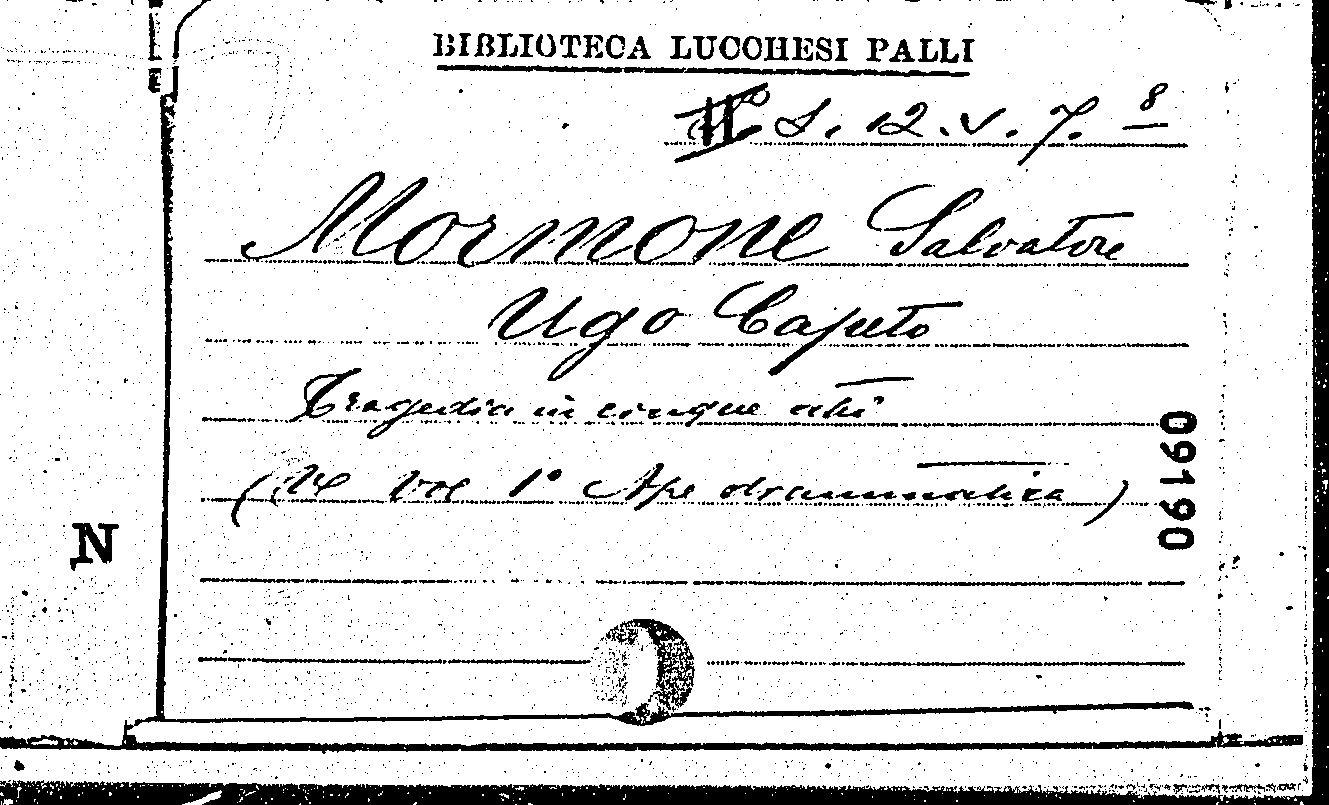 BIBLIOTECA LUCCHESI PALLI
S. 12. V. 7. 8
Mormone Salvatore
Ugo Capeto
Tragedia in cinque atti
(Ve Vol 1° Ape drammatica)
09190
N